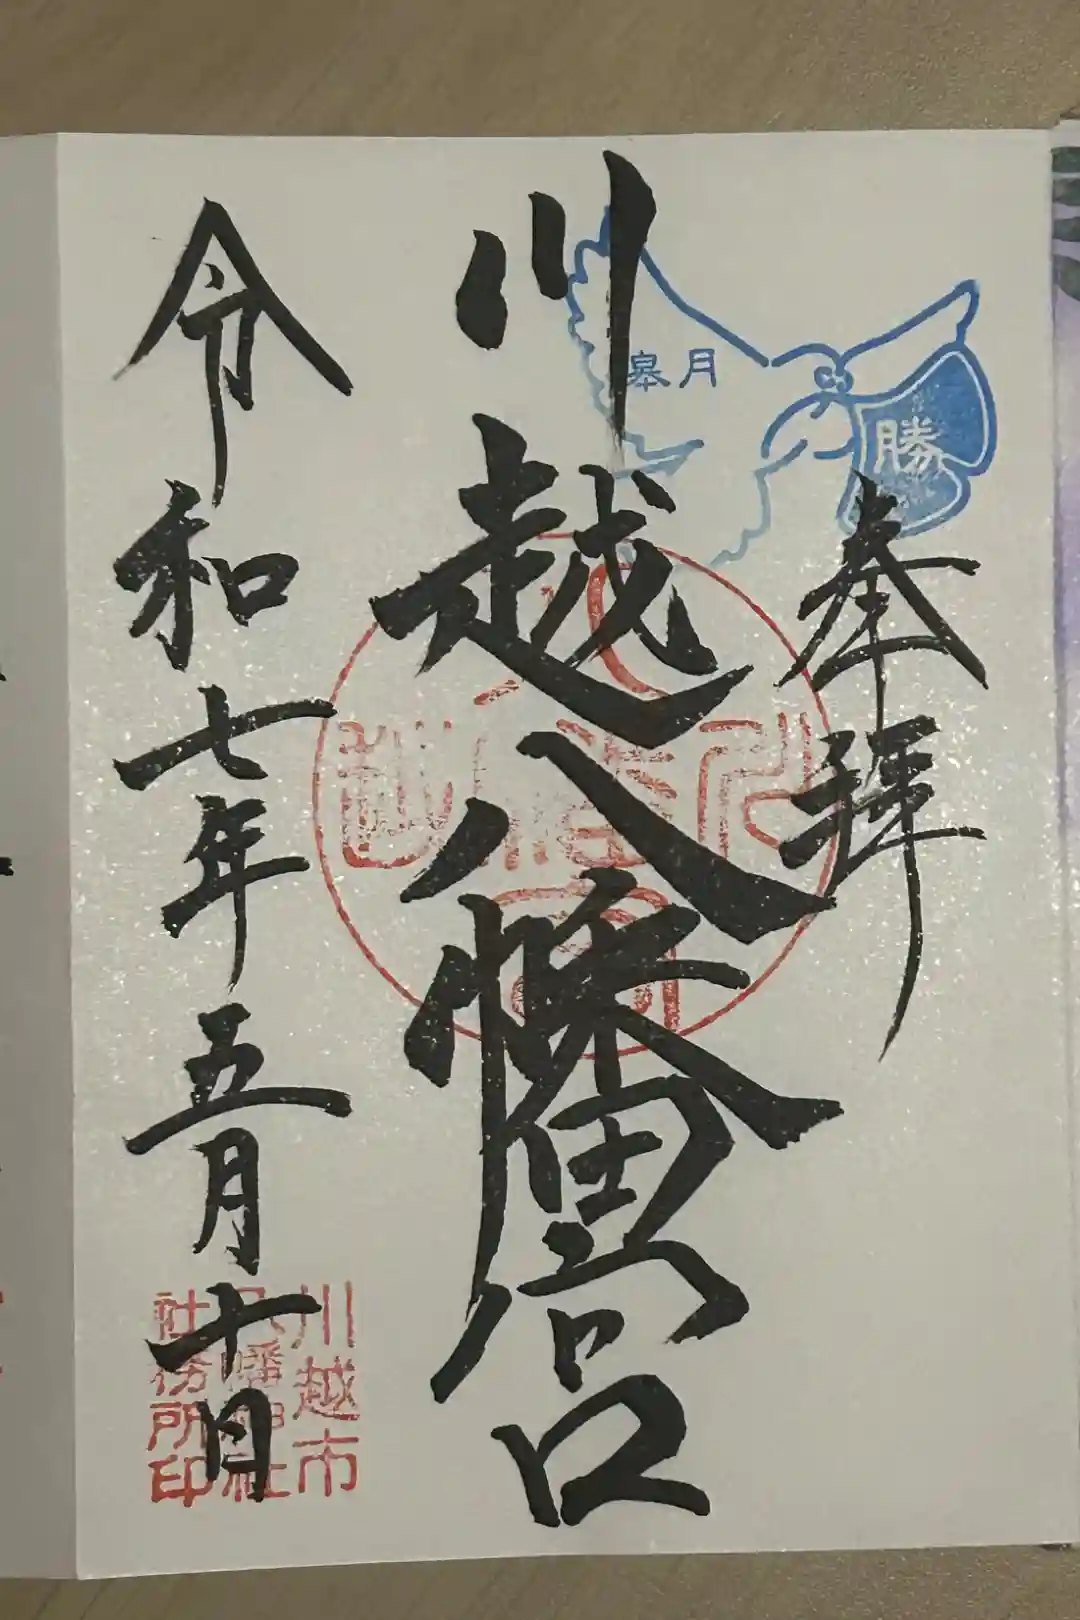 奉拝
川越八幡宮
令和七年五月十日
皐月
勝
川越市
八幡神社
社務所印